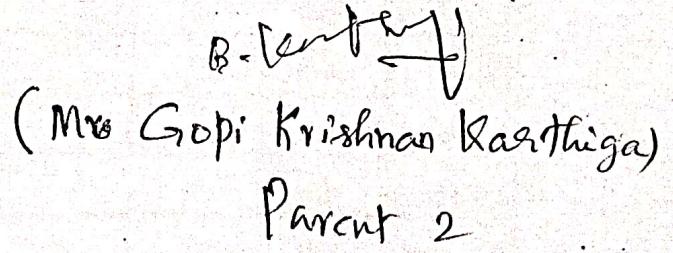 B.
(Mrs Gopi Krishnan Karthiga)
Parent 2